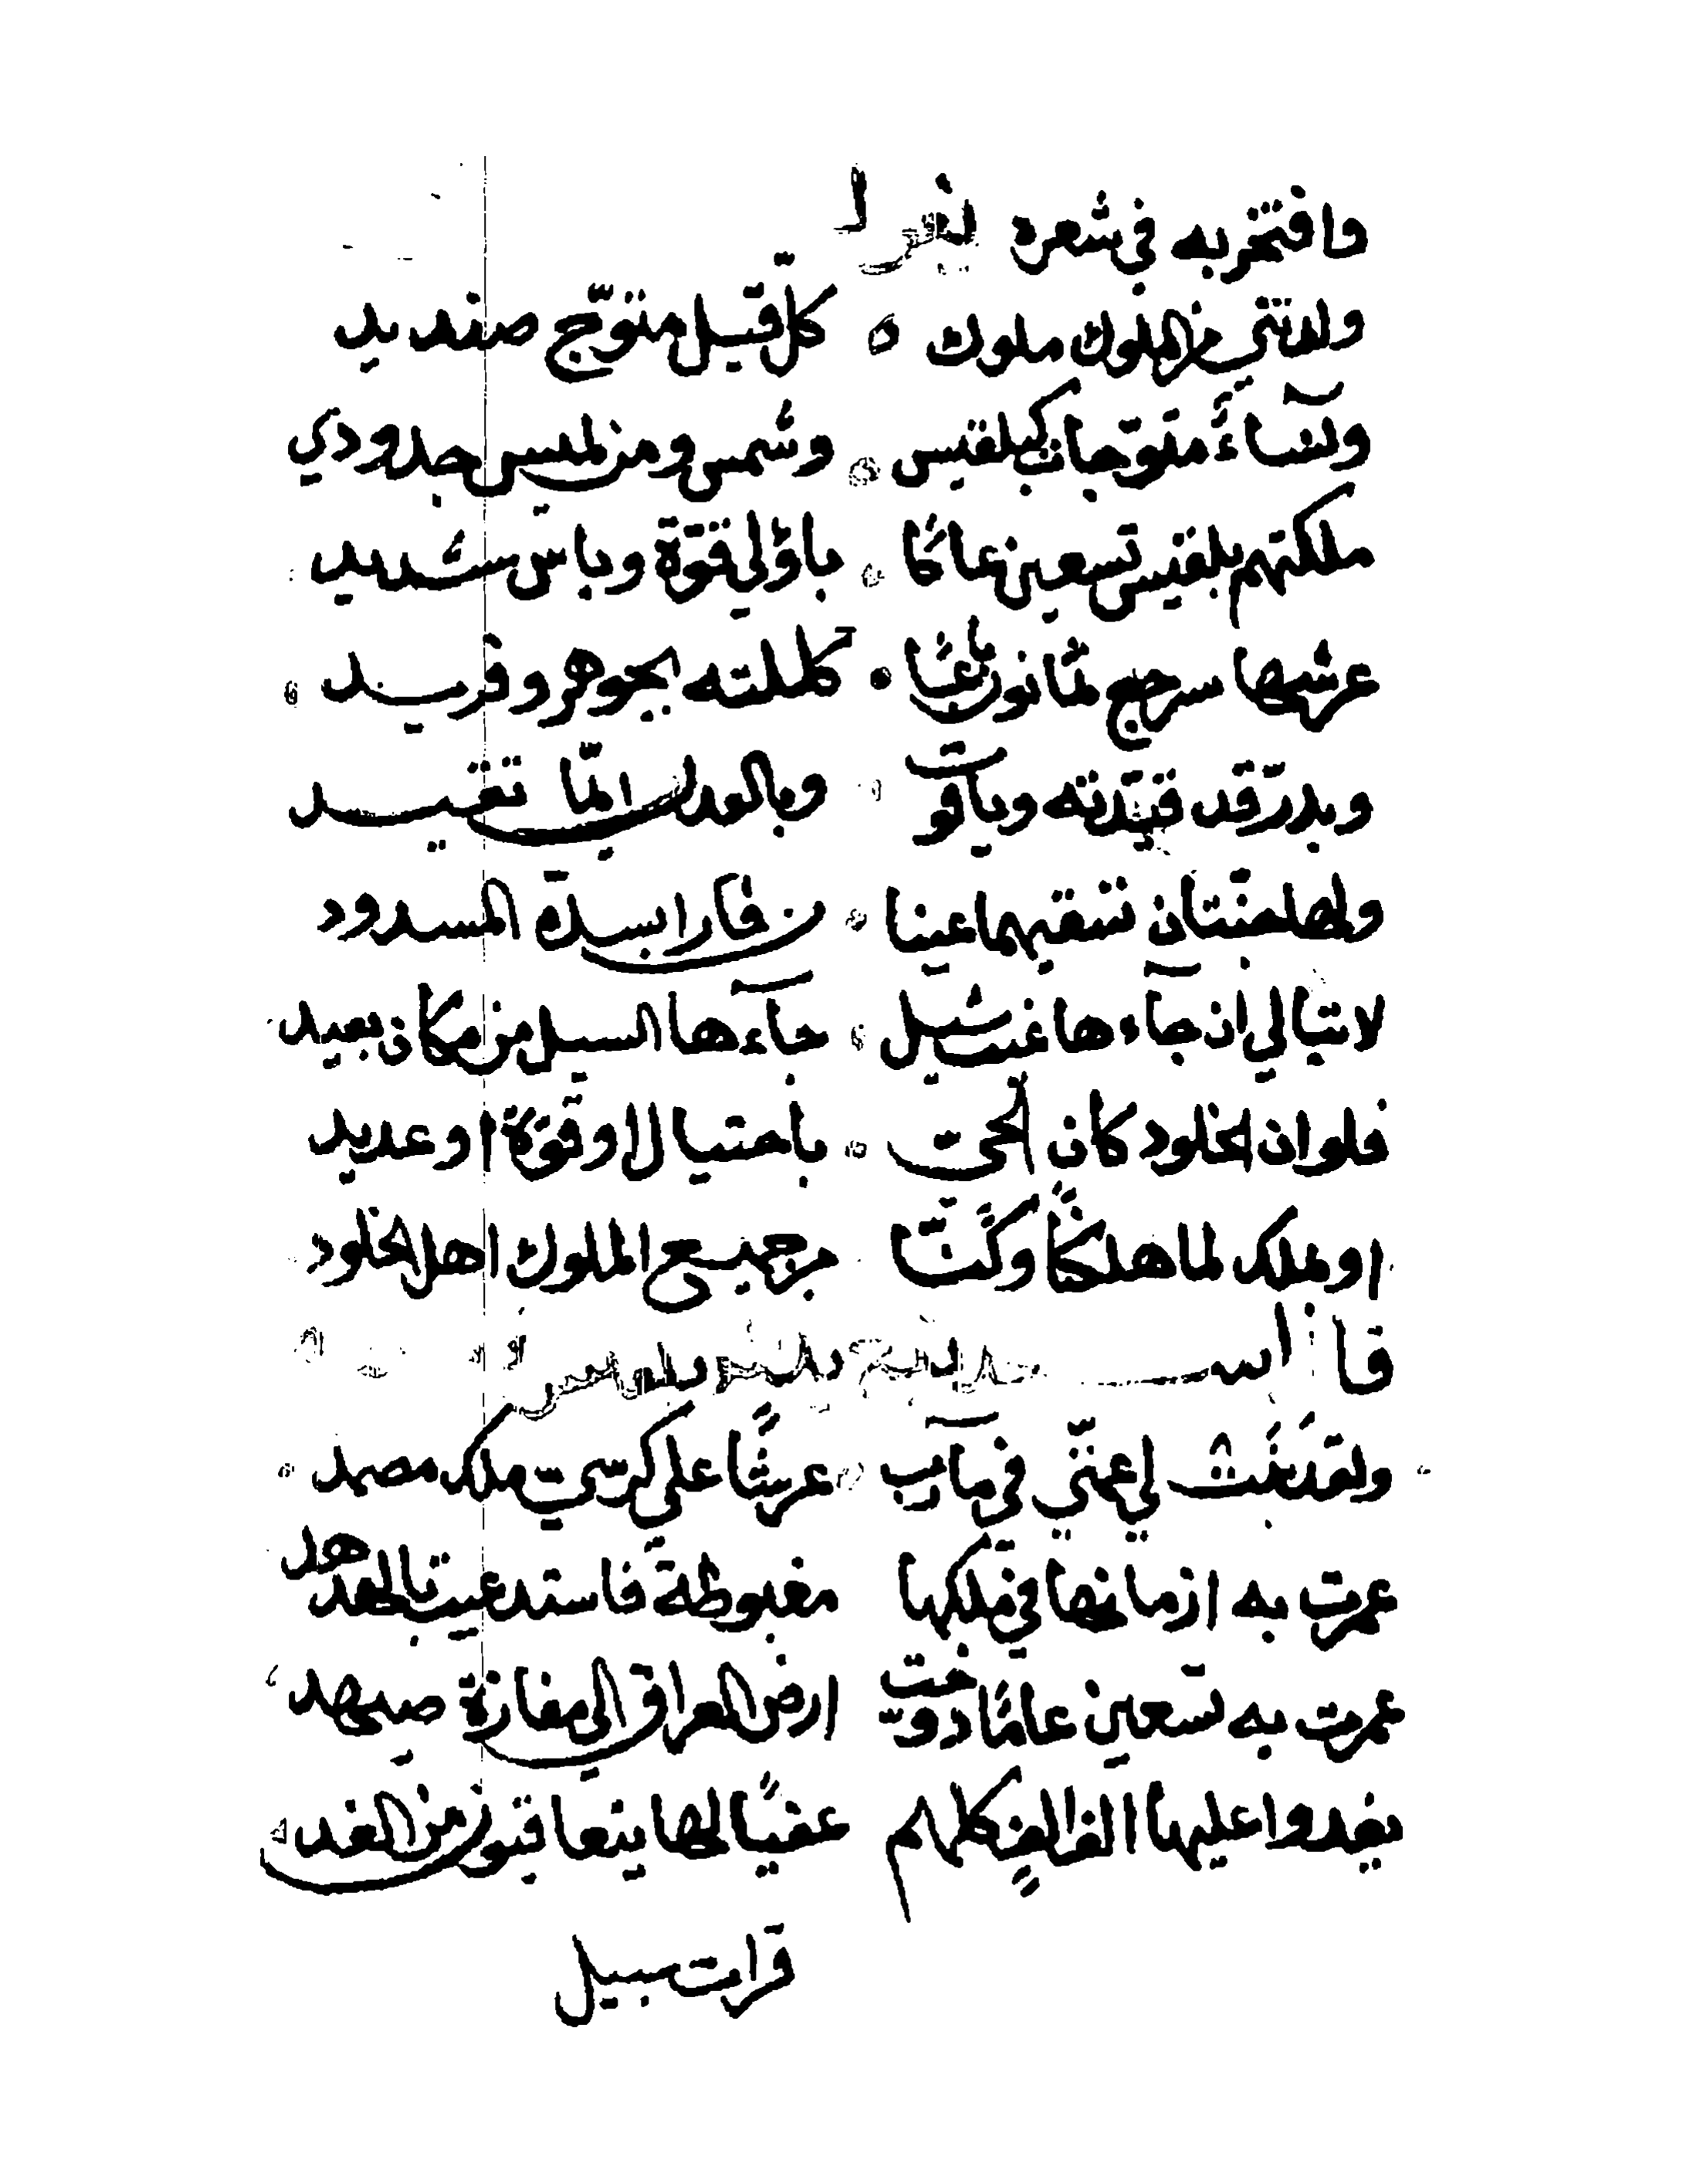 وافتخر به في شعره يقول
ولدتني من الملوك ملوك ه كلّ قيل متوّج صنديد
ونسآءً متوّجات كبلقيس وشمس ومن لميس جدودي
ملكتهم بلقيس تسعين عامًا باؤلي قوّة وباس شديد
عرشها سرجع ثمانون باعًا كللته بجوهر وفريد
وبدرّ قد قيّدته وياقوت وبالعدل ايمّا تقييد
ولها جنّتان تسقيهما عينان فارا بسدّة المسدود
لا تبالي ان جآءها غيث سيل جآءها السيل من مكان بعيد
فلو ان الخلود كان لحيّ باحتيال او قوّة او عديد
او بملك لما هلكنًا وكنّا من جميع الملوك اهل الخلود
قال
ولقد بَنَت لي عمّتي في مآرب عرشًا على كرسيّ ملك مصمد
عمرت به ازمانها في ملكها مغبوطة فاستدعيت بالهدهد
عمرت به تسعين عامًا دوّخت ارض العراق الى مفازة صيهد
يغدوا عليها الف الفٍ كلهم عقبًا لها يتعاقبون من الغد
قرات سبيل